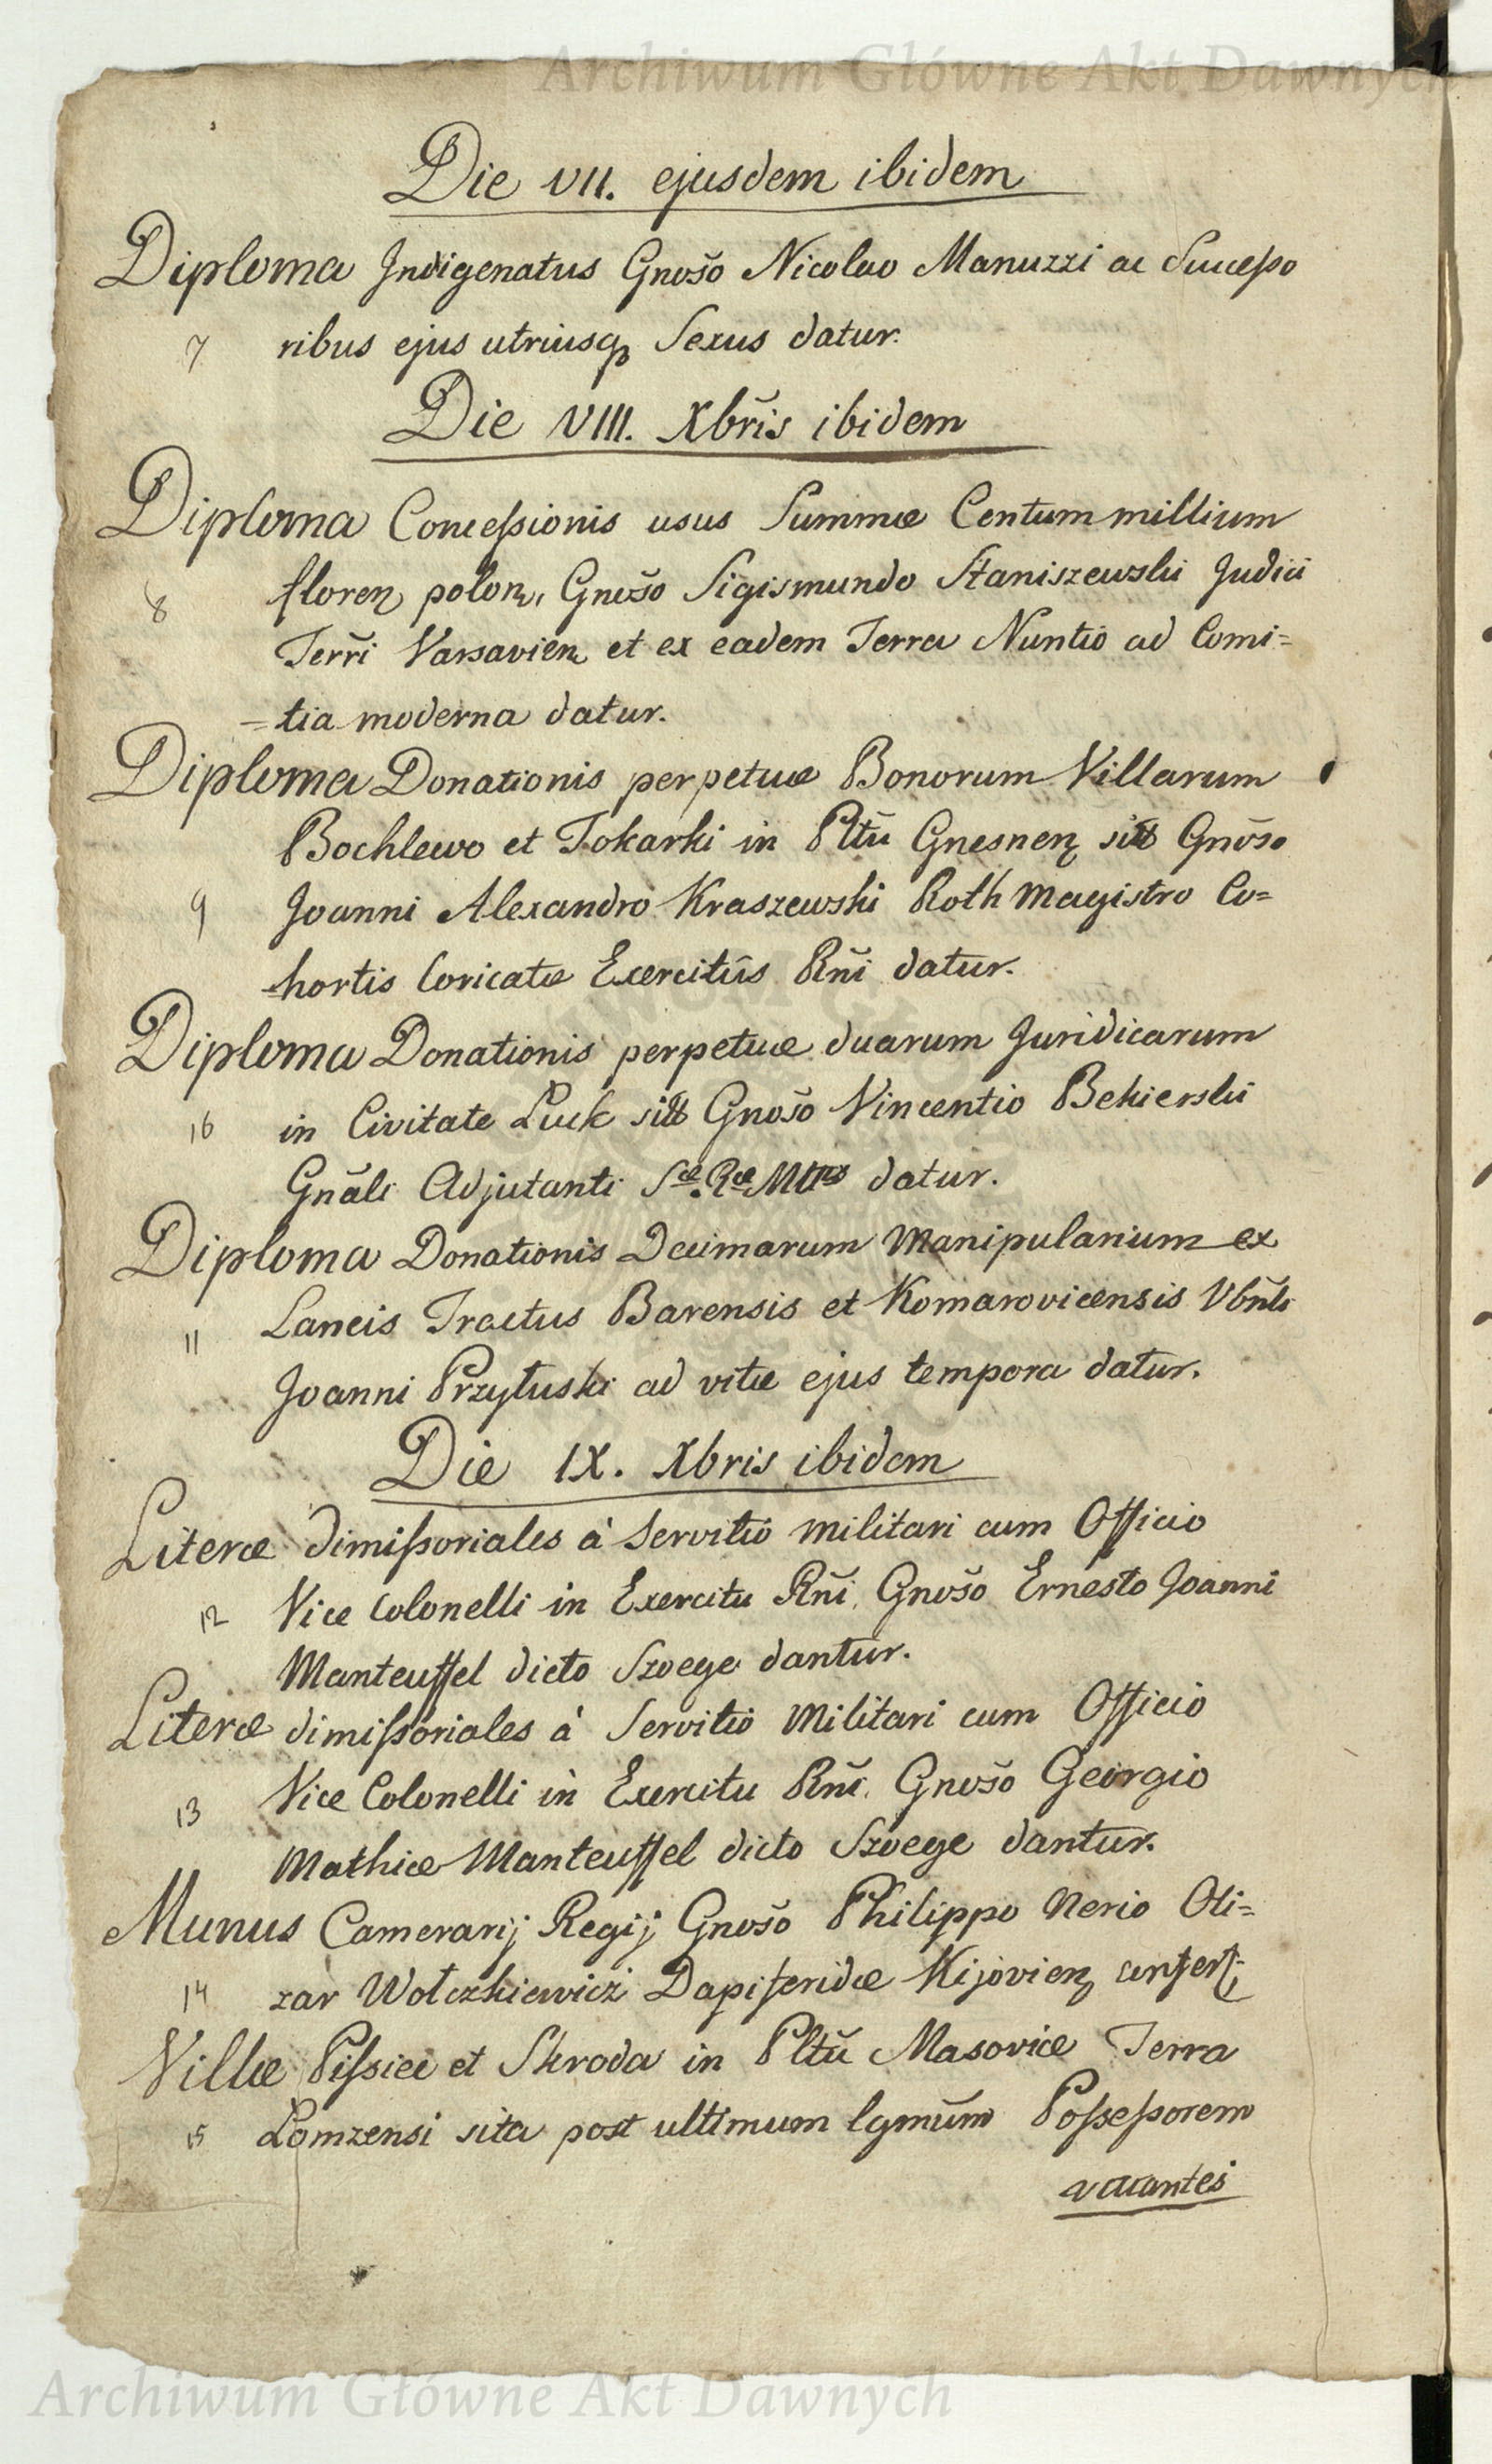 Archiwum Główne Akt Dawnych
Die VII. ejusdem ibidem
Diploma Indigenatus Gnoso Nicolao Manuzzi ac Successo
7 ribus ejus utriusq Sexus datur.
Die VIII. Xbris ibidem
Diploma Concessionis usus Summæ Centum millium
8 floren polon, Gnoso Sigismundo Staniszewski Judici
Terri Varsavien et ex eadem Terra Nuntio ad Comi=
=tia moderna datur.
Diploma Donationis perpetuæ Bonorum Villarum
Bochlewo et Tokarki in Pltu Gnesnen Gnoso
9 Joanni Alexandro Kraszewski Roth Magistro Co=
hortis Coricatæ Exercitus Rni datur.
Diploma Donationis perpetuæ duarum Juridicarum
10 in Civitate Luck Gnoso Vincentio Bekierski
Gnali Adjutanti Sæ Ræ Mttis datur.
Diploma Donationis Decimarum Manipularium ex
11 Laneis Tractus Barensis et Komarovicensis Vbnli
Joanni Przyłuski ad vitæ ejus tempora datur.
Die IX. Xbris ibidem
Literæ dimissoriales à Servitio militari cum Officio
12 Vice Colonelli in Exercitu Rni Gnoso Ernesto Joanni
Manteuffel dicto Szoege dantur.
Literæ dimissoriales à Servitio Militari cum Officio
13 Vice Colonelli in Exercitu Rni Gnoso Georgio
Mathiæ Manteuffel dicto Szoege dantur.
Munus Camerarij Regij Gnoso Philippo Nerio Oli=
14 zar Wołczkiewicz Dapiferidæ Kijovien confert
Villæ Pissice et Skroda in Pltu Masoviæ Terra
15 Lomzensi sita post ultimum lgmum Possessorem
vacantes
Archiwum Główne Akt Dawnych